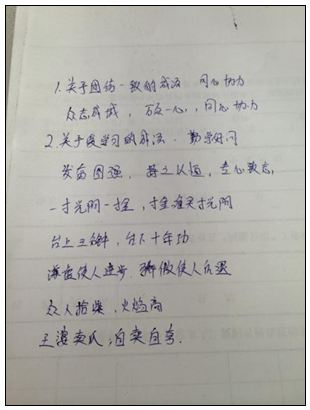 1.关于团结一致的成语 同心协力
众志成城，万众一心，同心协力
2.关于爱学习的成语. 勤学好问
发奋图强，持之以恒，专心致志，
一寸光阴一寸金，寸金难买寸光阴
台上三分钟，台下十年功
谦虚使人进步.骄傲使人落后
众人拾柴，火焰高
王婆卖瓜，自卖自夸.